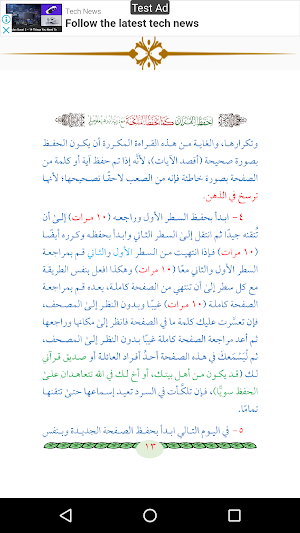 Test Ad
Tech News
Follow the latest tech news
احفظ القرآن كما تحفظ الفاتحة
وتكرارهـا، والغايـة مـن هـذه القـراءة المكـررة أن يكـون الحفـظ
بصورة صحيحة (أقصد الآيات)، لأنَّه إذا تم حفظ آية أو كلمة من
الصفحة بصورة خاطئة فإنه من الصعب لاحقًا تصحيحها؛ لأنها
ترسخ في الذهن.
٤- ابـدأ بحفـظ السـطر الأول وراجعـه (١٠ مـرات) إلـىٰ أن
تُتقنه جيدًا ثم انتقل إلىٰ السطر الثاني وابـدأ بحفظـه وكـرره أيضًا
(١٠ مرات) فـإذا انتهيـت مـن السـطر الأول والثـاني قـم بمراجعـة
السطر الأول والثاني معًا (١٠ مرات) وهكذا افعل بنفس الطريقة
مع كل سطر إلىٰ أن تنتهي من الصفحة كاملـة، بعـده قـم بمراجعـة
الصفحة كاملـة (١٠ مـرات) غيبًـا وبـدون النظـر إلـىٰ المصـحف،
فإن تعسَّرت عليك كلمة ما في الصفحة فانظر إلىٰ مكانها وراجعها
ثم أعد مراجعة الصفحة كاملة غيبًا بـدون النظـر إلـىٰ المصـحف،
ثم ليَسْمَعَك في هـذه الصـفحة أحـدُ أفـراد العائلـة أو صـديق قـرآني
لـك (قـد يكـون مـن أهـل بيتـك، أو أخ لـك في الله تتعاهـدان علـىٰ
الحفظ سويًّا)، فـإن تلكَّـأت في السـرد تعيـد إسـماعها حتـىٰ تتقنهـا
تمامًا.
٥- في اليـوم التـالي ابـدأ بحفـظ الصـفحة الجديـدة وبـنفس
١٣